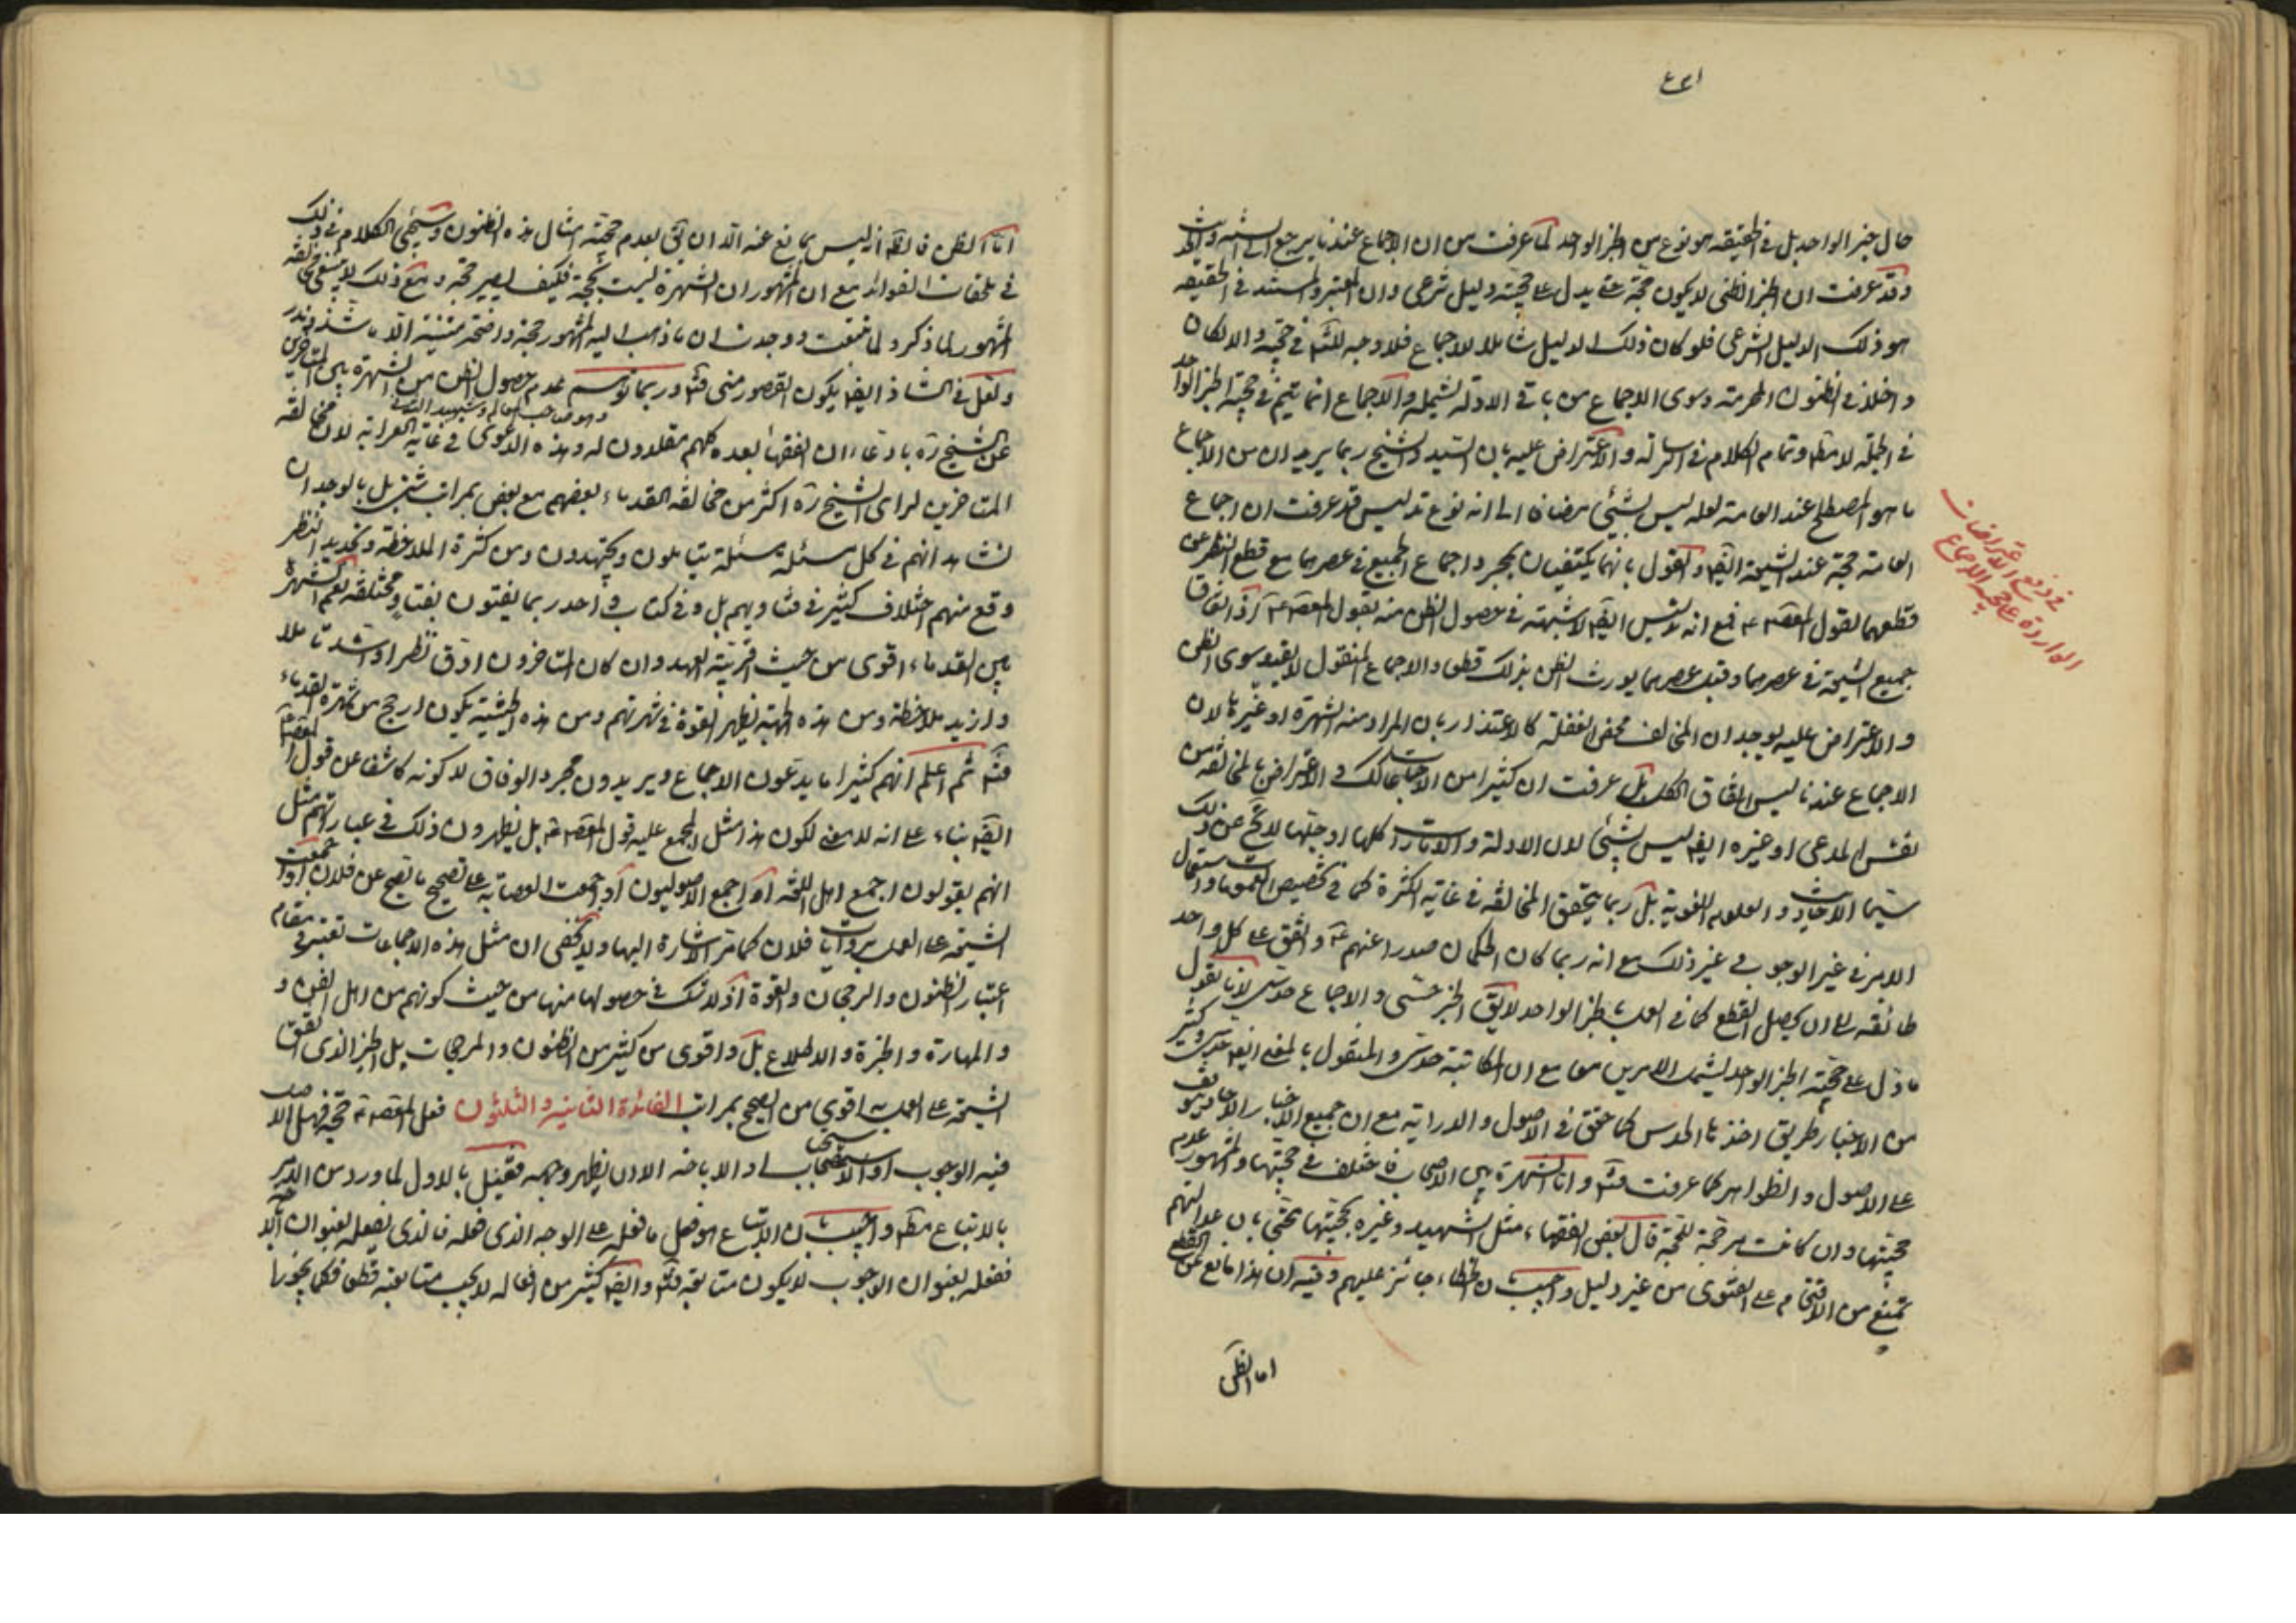 حال خبر الواحد بل في الحقيقة هو نوع من الخبر الواحد لما عرفت من ان الاجماع عندنا يرجع الى السنة والحديث
وقد عرفت ان الخبر الظني لا يكون حجة حتى يدل على حجيته دليل شرعي وان المعتبر والمستند في الحقيقة
هو ذلك الدليل الشرعي فلو كان ذلك الدليل شاملا للاجماع فلا وجه للتأمل في حجيته والا لكان
داخلا في الظنون المحرمة وسوى الاجماع من باقي الادلة يشمله والاجماع انما يتم في حجية الخبر الواحد
في الجملة لا مطلقا وتمام الكلام في الرسالة والاعتراض عليه بان السيد والشيخ ربما يريدان من الاجماع
ما هو المصطلح عند العامة لعله ليس بشيئ مضافا الى انه نوع تدليس قد عرفت ان اجماع
العامة حجة عند الشيعة ايضا والقول بانهما يكتفيان بمجرد اجماع الجميع في عصرهما مع قطع النظر عن
قطعهما لقول المعصوم ع فمع انه تدليس ايضا لا شبهة في حصول الظن منه بقول المعصوم ع اذ اتفاق
جميع الشيعة في عصرهما وقبل عصرهما يورث الظن بذلك قطعا والاجماع المنقول لا يفيد سوى الظن
والاعتراض عليه بوجدان المخالف محض الغفلة كالاعتذار بان المراد منه الشهرة او غيرها لان
الاجماع عندنا ليس اتفاق الكل بل عرفت ان كثيرا من الاجماعات كذلك والاعتراض بالمخالفة من
نفس المدعى او غيره ايضا ليس بشيئ لان الادلة والامارات كلها او جلها لا تخ عن ذلك
سيما الاحاديث والعلوم اللغوية بل ربما يتحقق المخالفة في غاية الكثرة كما في تخصيص العمومات واستعمال
الامر في غير الوجوب في غير ذلك مع انه ربما كان الحكمان صدرا عنهم ع واتفق على كل واحد
طائفة الى ان يحصل القطع كما في العمل بخبر الواحد لا يق الخبر حسي والاجماع حدسي لانا نقول
ما دل على حجية الخبر الواحد يشمل الامرين معا مع ان المكاتبة حدسي والمنقول بالمعنى ايضا حدسي وكثير
من الاخبار طريق اخذها الحدس كما حقق في الاصول والدراية مع ان جميع الاخبار الاحاديث موقوف
على الاصول والظواهر كما عرفت فتأمل واما الشهرة بين الاصحاب فاختلف في حجيتها والمشهور عدم
حجيتها وان كانت مرجحة للحجة قال بعض الفقهاء مثل الشهيد وغيره بحجيتها محتجا بان عدالتهم
تمنع من الاقتحام على الفتوى من غير دليل واجيب بان الخطاء جائز عليهم وفيه ان هذا مانع عن القطع
اما الظن
في دفع الاعتراضات
الواردة على حجية الاجماع
اما الظن فالظاهر انه ليس بمانع عنه الا ان يق بعدم حجية امثال هذه الظنون وسيجئ الكلام في ذلك
في ملحقات الفوائد مع ان المشهور ان الشهرة ليست بحجة فكيف يصير حجة ومع ذلك لا ينبغي مخالفة
المشهور لما ذكر ولما تتبعت ووجدت ان ما ذهب اليه المشهور حجة واضحة متينة الا ما شذ وندر
ولعل في الشاذ ايضا يكون القصور مني فتأمل وربما توهم عدم حصول الظن من الشهرة بين المتأخرين
وهو صاحب المعالم والشهيد الثاني
عن الشيخ ره بادعاء ان الفقهاء بعده كلهم مقلدون له وهذه الدعوى في غاية الغرابة لان مخالفة
المتاخرين لراى الشيخ ره اكثر من مخالفة القدماء بعضهم مع بعض بمراتب شتى بل بالوجدان
نشاهد انهم في كل مسئلة مسئلة يتاملون ويجتهدون ومن كثرة الملاحظة وتجديد النظر
وقع منهم اختلاف كثير في فتاويهم بل وفي كتاب واحد ربما يفتون بفتاو مختلفة نعم الشهرة
بين القدماء اقوى من حيث قربية العهد وان كان المتاخرون ادق نظرا واشد تأملا
وازيد ملاحظة ومن هذه الجهة يظهر القوة في شهرتهم ومن هذه الحيثية يكون ارجح من شهرة القدماء
فتأمل ثم اعلم انهم كثيرا ما يدعون الاجماع ويريدون مجرد الوفاق لا كونه كاشفا عن قول المعصوم ع
ايضا بناء على انه لا معنى لكون هذا مثل المجمع عليه قول المعصوم ع بل يظهرون ذلك في عباراتهم مثل
انهم يقولون اجمع اهل اللغة او اجمع الاصوليون او اجمعت العصابة على تصحيح ما تصح عن فلان او اجمعت
الشيعة على العمل بروايات فلان كما مر الاشارة اليها ولا يخفى ان مثل هذه الاجماعات تعتبر في مقام
اعتبار الظنون والرجحان والقوة اذ لا شك في حصولها منها من حيث كونهم من اهل الفن و
والمهارة والخبرة والاطلاع بل واقوى من كثير من الظنون والمرجحات بل الخبر الذي اتفق
الشيعة على العمل به اقوى من الصحيح بمراتب الفائدة الثانية والثلثون فعل المعصوم ع حجة فهل الاصل
فيه الوجوب او الاستحباب او الاباحة الا ان يظهر وجهه فقيل بالاول لما ورد من الامر
بالاتباع مطلقا واجيب بان الاتباع هو فعل ما فعل على الوجه الذي فعله فالذي يفعله بعنوان الاباحة
ففعله بعنوان الوجوب لا يكون متابعة فتأمل وايضا كثير من افعاله لا يجب متابعته قطعا فكما يجوزها